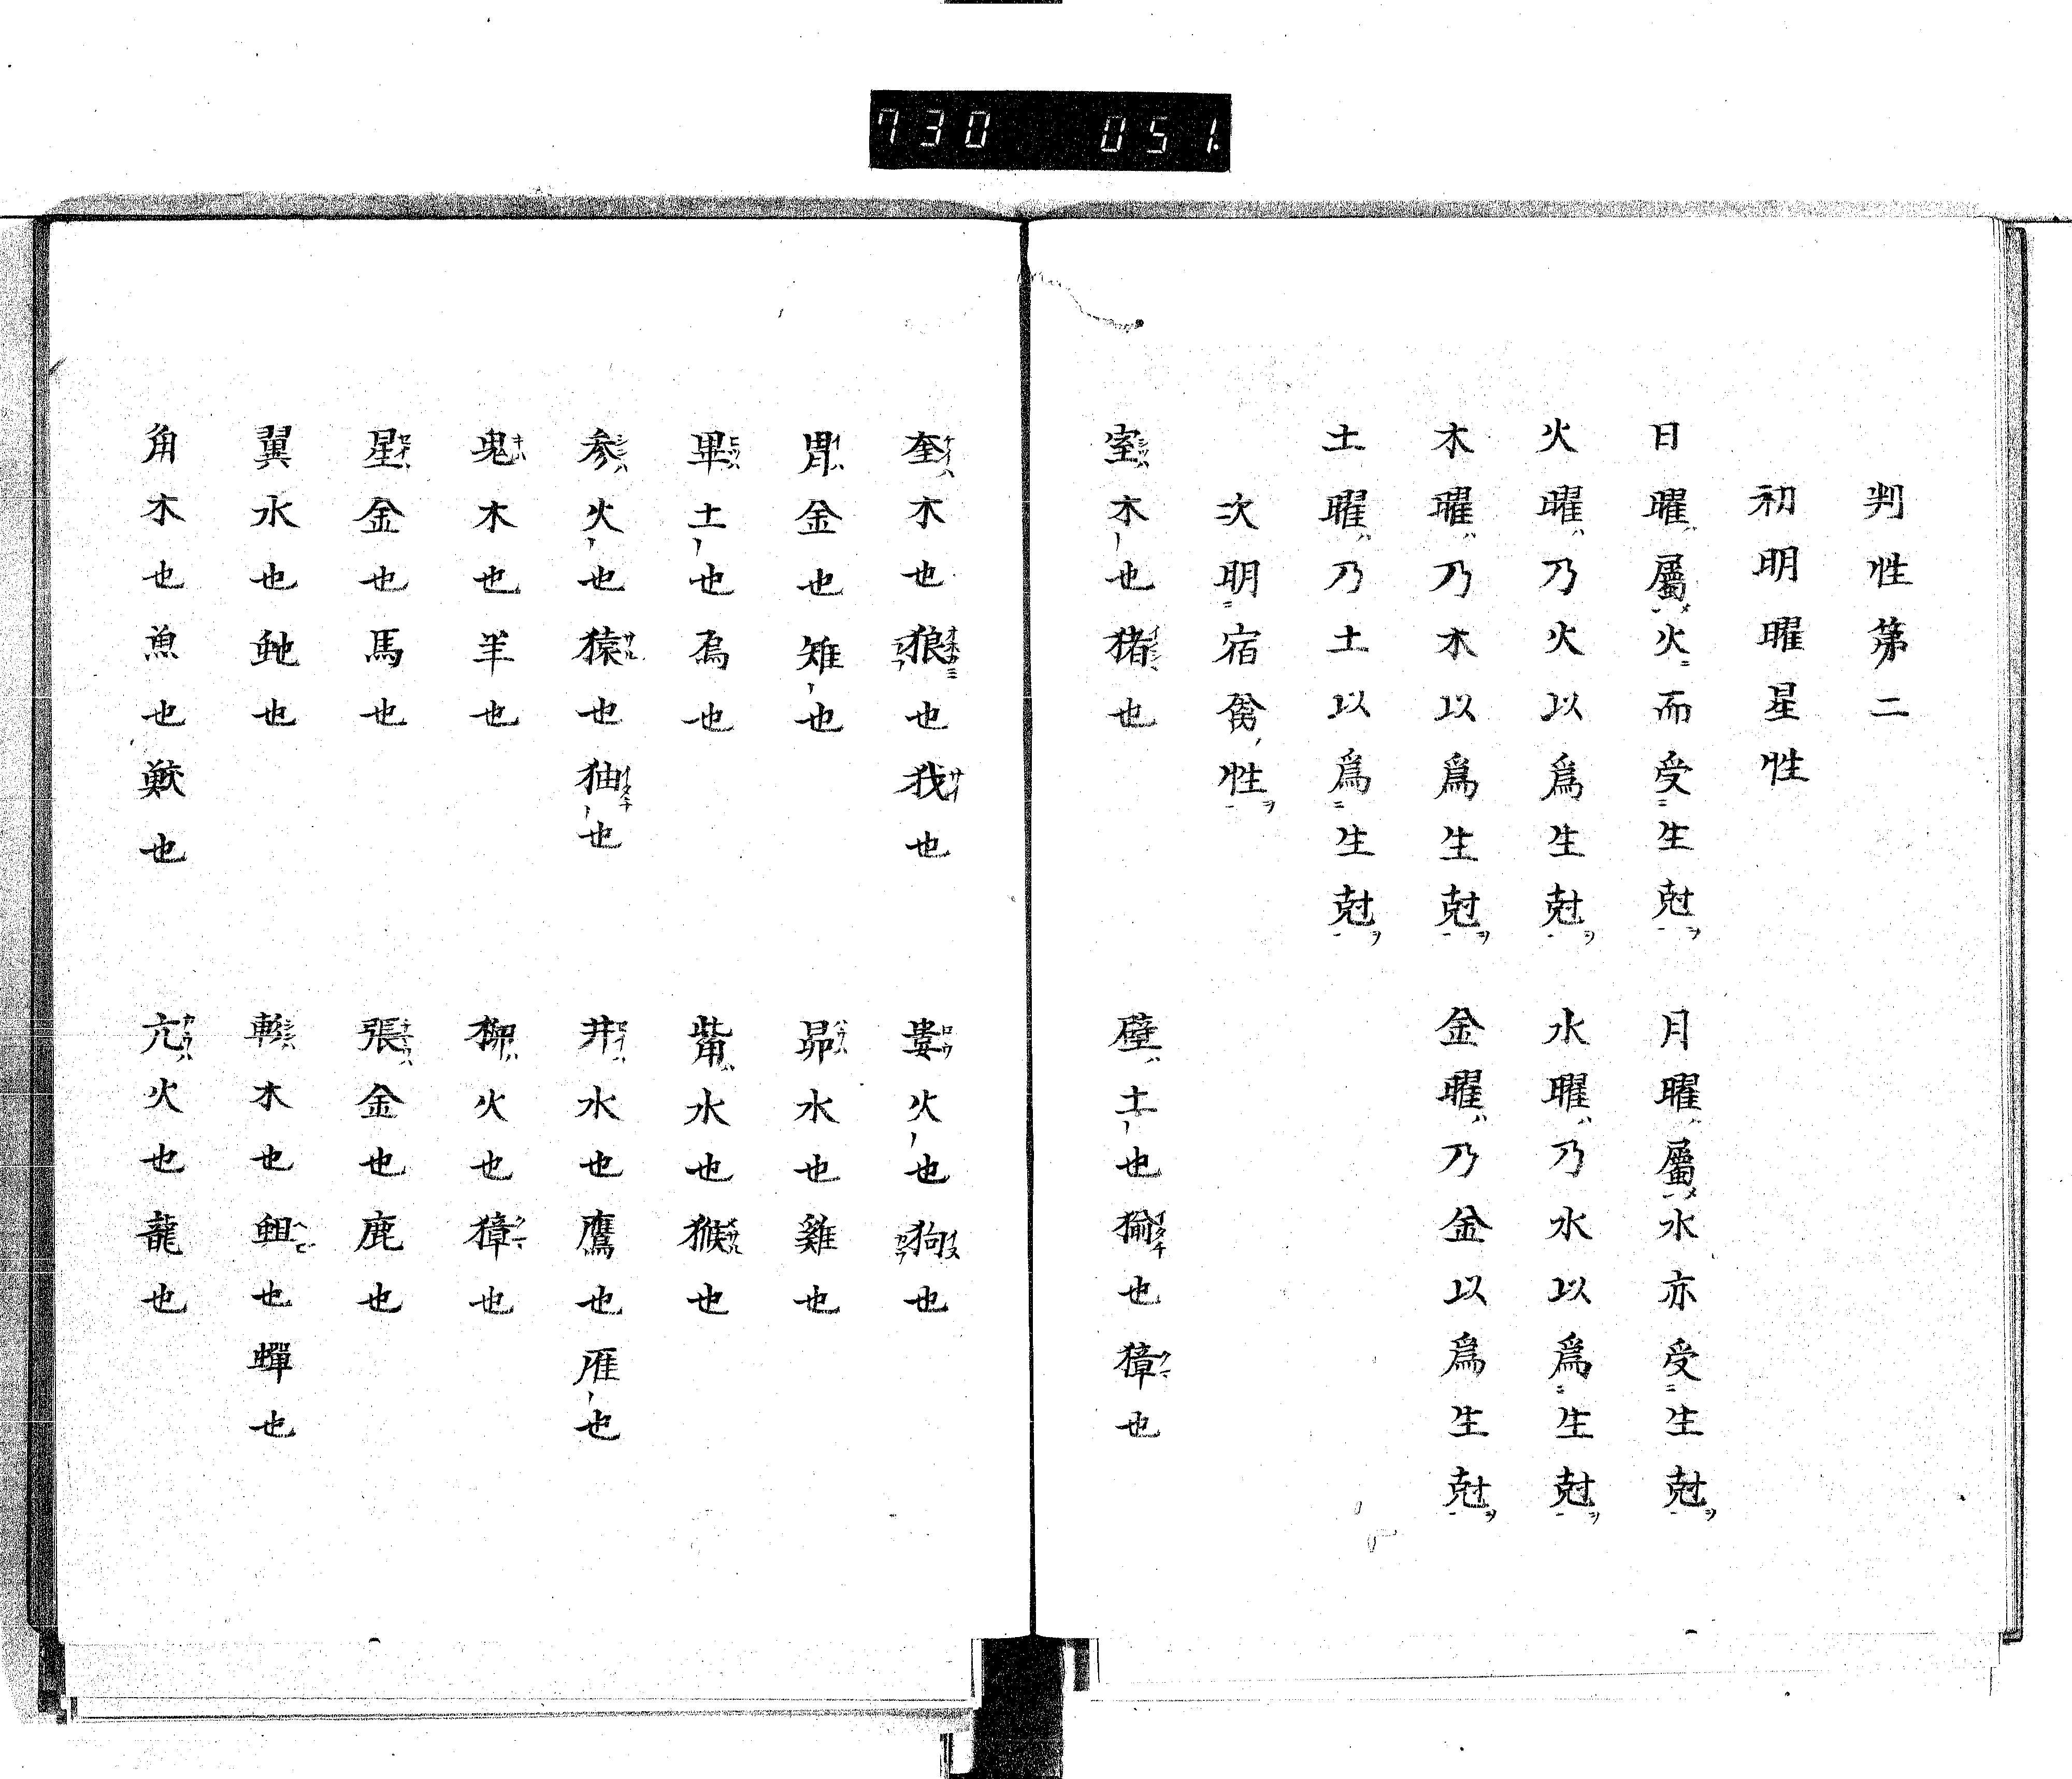 730 051
判性第二
初明曜星性
日曜屬火而受生尅 月曜屬水亦受生尅
火曜乃火以爲生尅 水曜乃水以爲生尅
木曜乃木以爲生尅 金曜乃金以爲生尅
土曜乃土以爲生尅
次明宿禽性
室木也猪也 壁土也㺄也獐也
奎木也狼也也 婁火也狗也
胃金也雉也 昴水也雞也
畢土也烏也 觜水也猴也
参火也猿也㹨也 井水也鷹也雁也
鬼木也羊也 柳火也獐也
星金也馬也 張金也鹿也
翼水也虵也 軫木也也蟬也
角木也魚也也 亢火也龍也